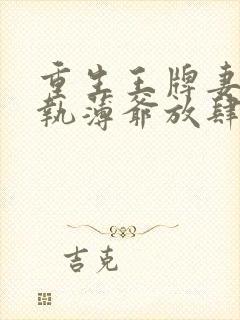 重生王牌妻
執薄爺放肆
吉克